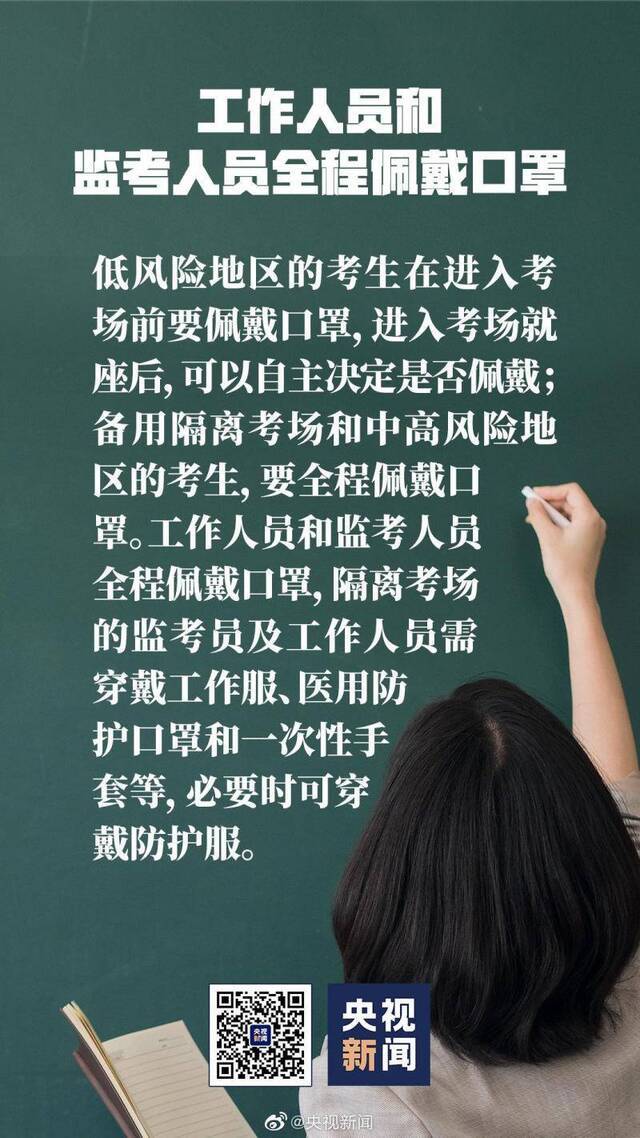 工作人员和
监考人员全程佩戴口罩
低风险地区的考生在进入考
场前要佩戴口罩，进入考场就
座后，可以自主决定是否佩戴；
备用隔离考场和中高风险地
区的考生，要全程佩戴口
罩。工作人员和监考人员
全程佩戴口罩，隔离考场
的监考员及工作人员需
穿戴工作服、医用防
护口罩和一次性手
套等，必要时可穿
戴防护服。
央视
新闻
央视
新闻
@央视新闻